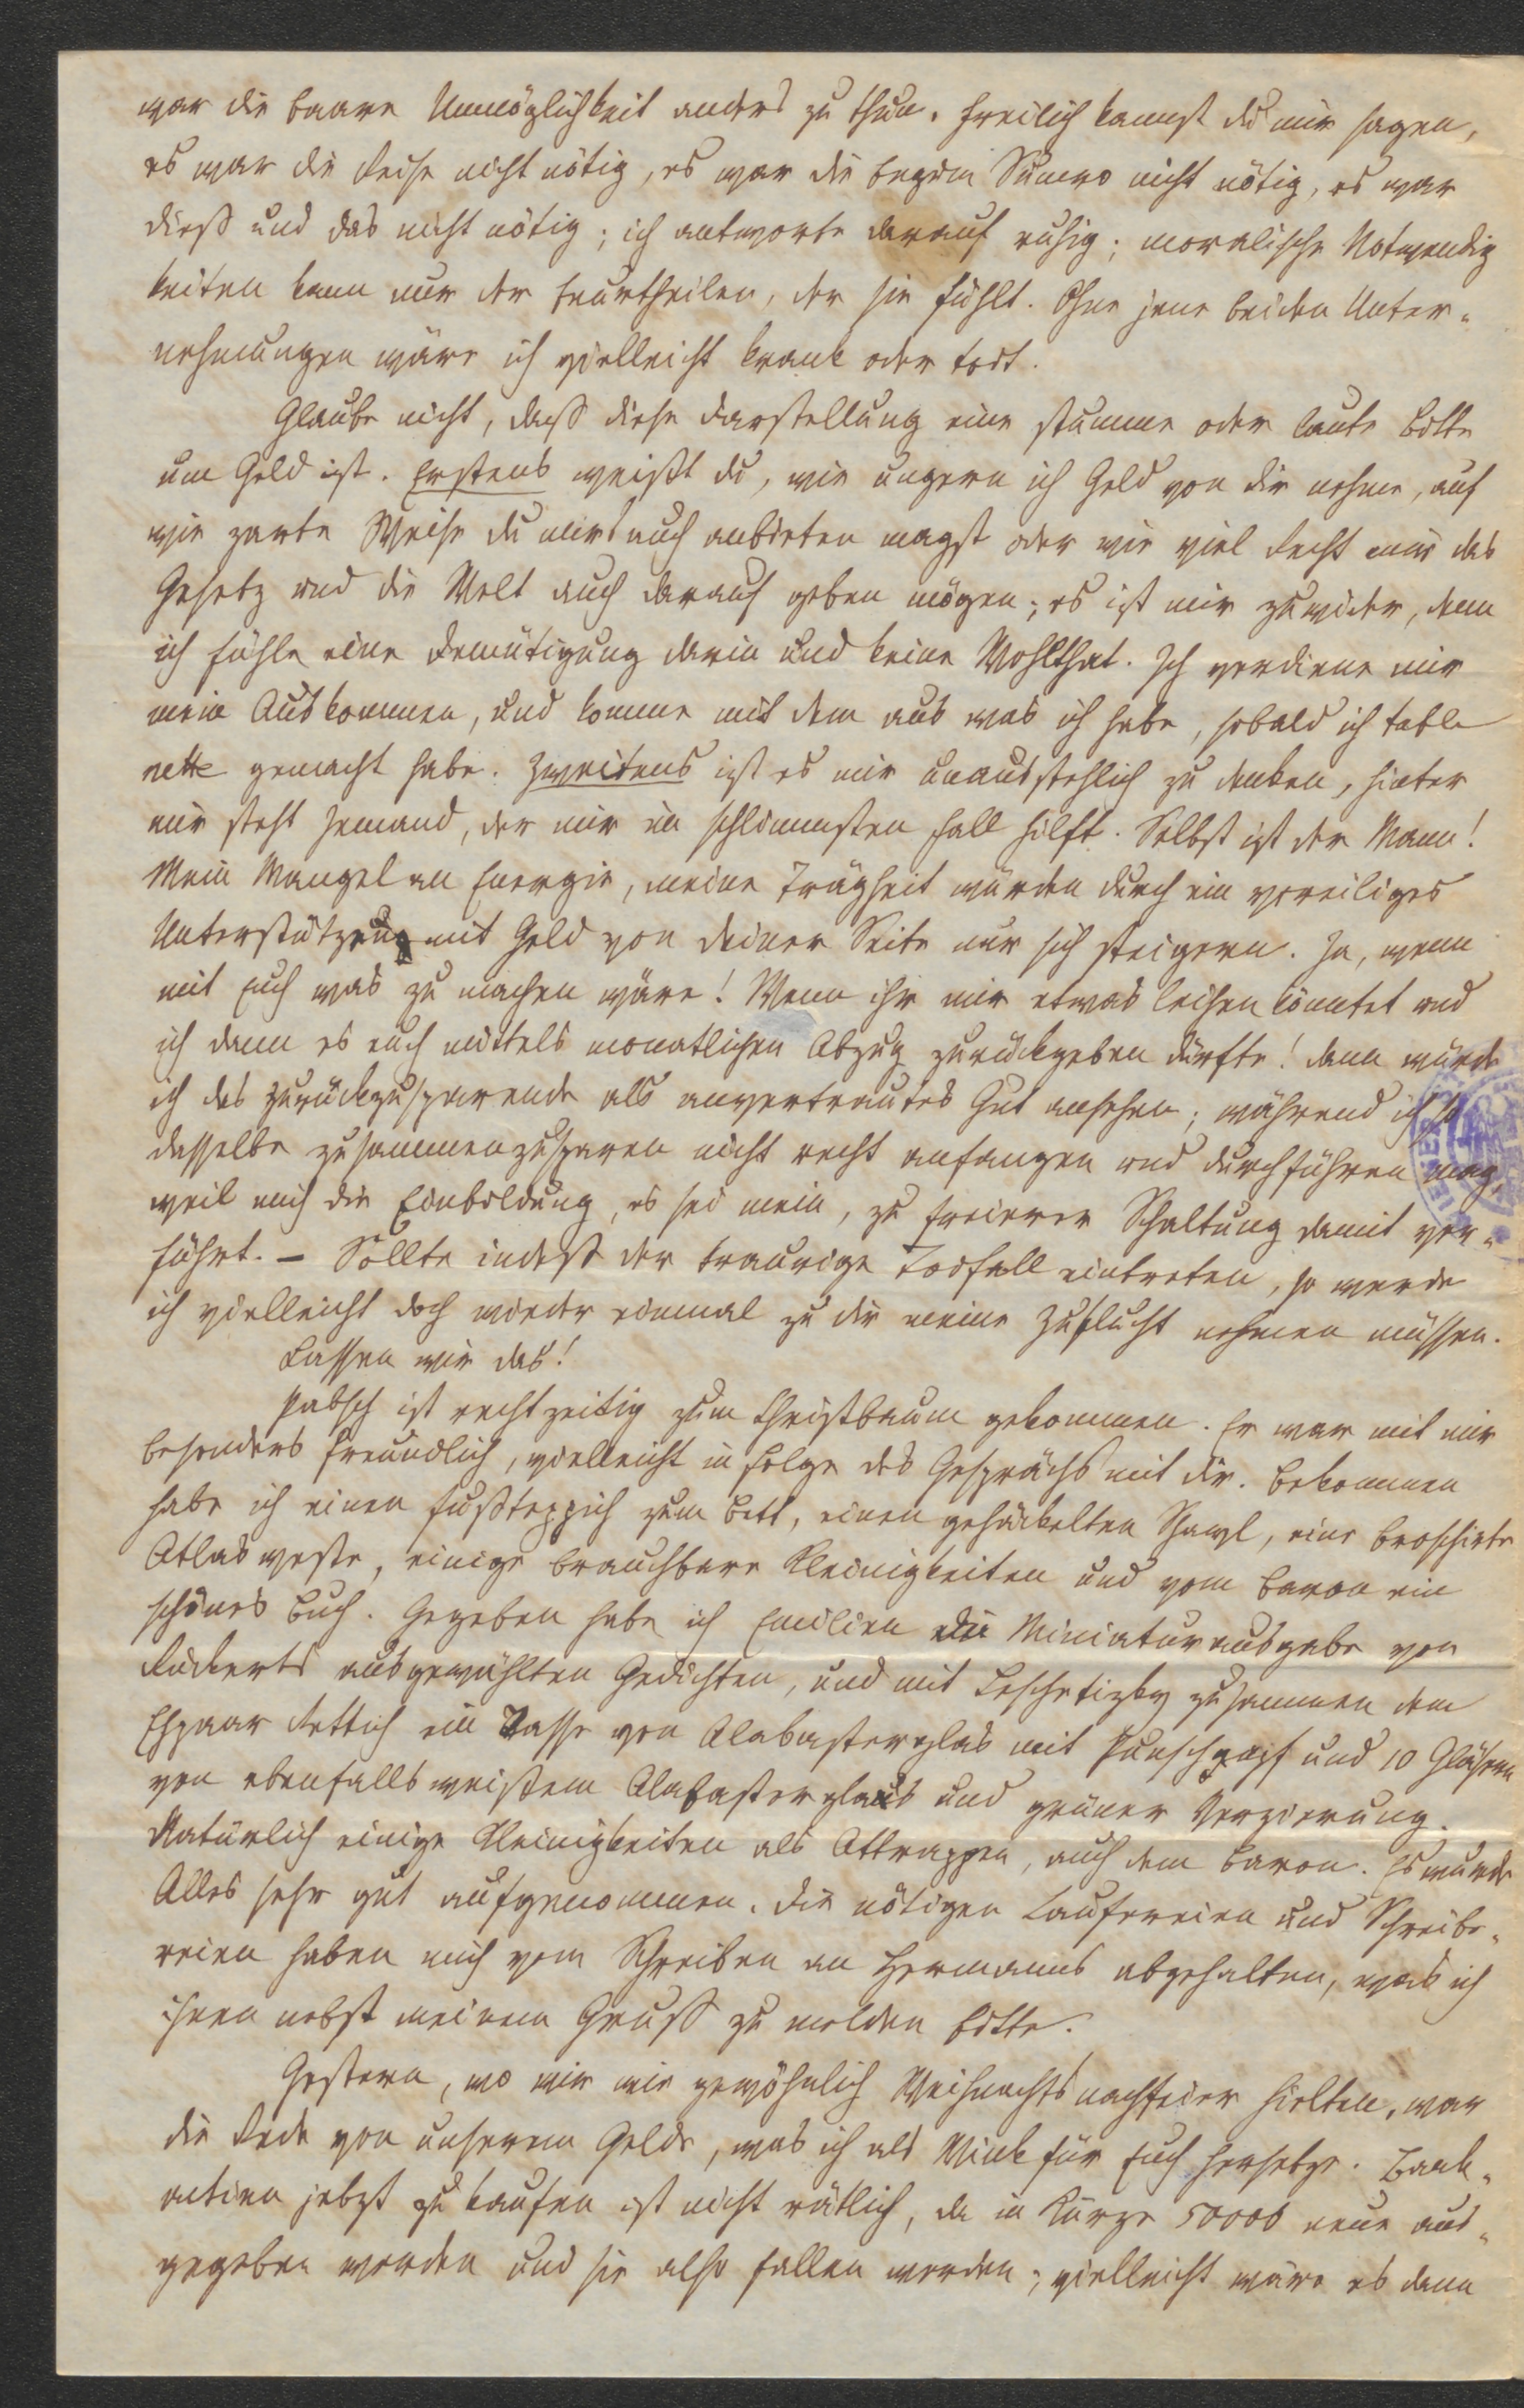 war die baare Unmöglichkeit anders zu thun. Freilich kannst du mir sagen,
es war die Reise nicht nötig, es war die Begum Sumro nicht nötig, es war
dieß und das nicht nötig; ich antworte darauf ruhig: moralische Notwendig
keiten kann nur der beurtheilen, der sie fühlt. Ohne jene beiden Unter-
nehmungen wäre ich vielleicht krank oder todt.
Glaube nicht, daß diese Darstellung eine stumme oder laute Bitte
um Geld ist. Erstens weißt du, wie ungern ich Geld von dir nehme, auf
wie zarte Weise du mirs auch anbieten magst oder wie viel Recht mir das
Gesetz und die Welt auch darauf geben mögen; es ist mir zuwider, denn
ich fühle eine Demütigung darin und keine Wohlthat. Ich verdiene mir
mein Auskommen, und komme mit dem aus was ich habe, sobald ich table
nette gemacht habe. Zweitens ist es mir unausstehlich zu denken, hinter
mir steht Jemand, der mir im schlimmsten Fall hilft. Selbst ist der Mann!
Mein Mangel an Energie, meine Trägheit würden durch ein voreiliges
Unterstützung mit Geld von deiner Seite nur sich steigern. Ja, wenn
mit Euch was zu machen wäre! Wenn ihr mir etwas leihen könntet und
ich dann es euch mittels monatlichen Abzug zurückgeben dürfte! dann würde
ich das zurückzusparende als anvertrautes Gut ansehen; während ich so
dasselbe zusammenzusparen nicht recht anfangen und durchführen mag,
weil mich die Einbildung, es sei mein, zu freierer Schaltung damit ver-
führt. – Sollte indeß der traurige Todfall eintreten, so werde
ich vielleicht doch wieder einmal zu dir meine Zuflucht nehmen müssen.
Lassen wir das!
Pabsch ist rechtzeitig zum Christbaum gekommen. Er war mit mir
besonders freundlich, vielleicht in Folge des Gesprächs mit dir. Bekommen
habe ich einen Fußteppich zum Bett, einen gehäckelten Shawl, eine broschirte
Atlasweste, einige brauchbare Kleinigkeiten und vom Baron ein
schönes Buch. Gegeben habe ich Emilien die Miniaturausgabe von
Rückerts ausgewählten Gedichten, und mit Leschetizky zusammen dem
Ehpaar Rettich ein Tasse von Alabasterglas mit Punschnapf und 10 Gläsern
von ebenfalls weißem Alabasterglas und grüner Verzierung.
Natürlich einige Kleinigkeiten als Attrappen, auch dem Baron. Es wurde
Alles sehr gut aufgenommen. Die nötigen Laufereien und Schreibe-
reien haben mich vom Schreiben an Hermanns abgehalten, was ich
ihnen nebst meinem Gruß zu melden bitte.
Gestern, wo wir wie gewöhnlich Weihnachtsnachfeier hielten, war
die Rede von unserem Gelde, was ich als Wink für Euch hersetze. Bank-
actien jetzt zu kaufen ist nicht rätlich, da in Kürze 50000 neue aus-
gegeben werden und sie also fallen werden; vielleicht wäre es dann